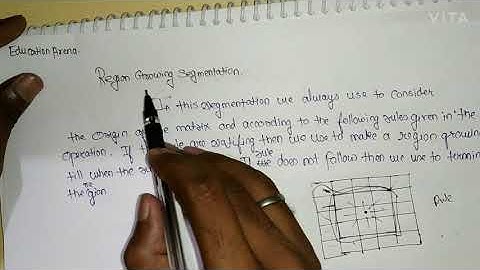 VITA
Education Arena.
Region Growing Segmentation.
In this segmentation we always use to consider
the origin of the matrix and according to the following rules given in the
operation. If the rule are satisfying then we use to make a region growing
till when the rule does not follow then we use to termin
the region.
Rule